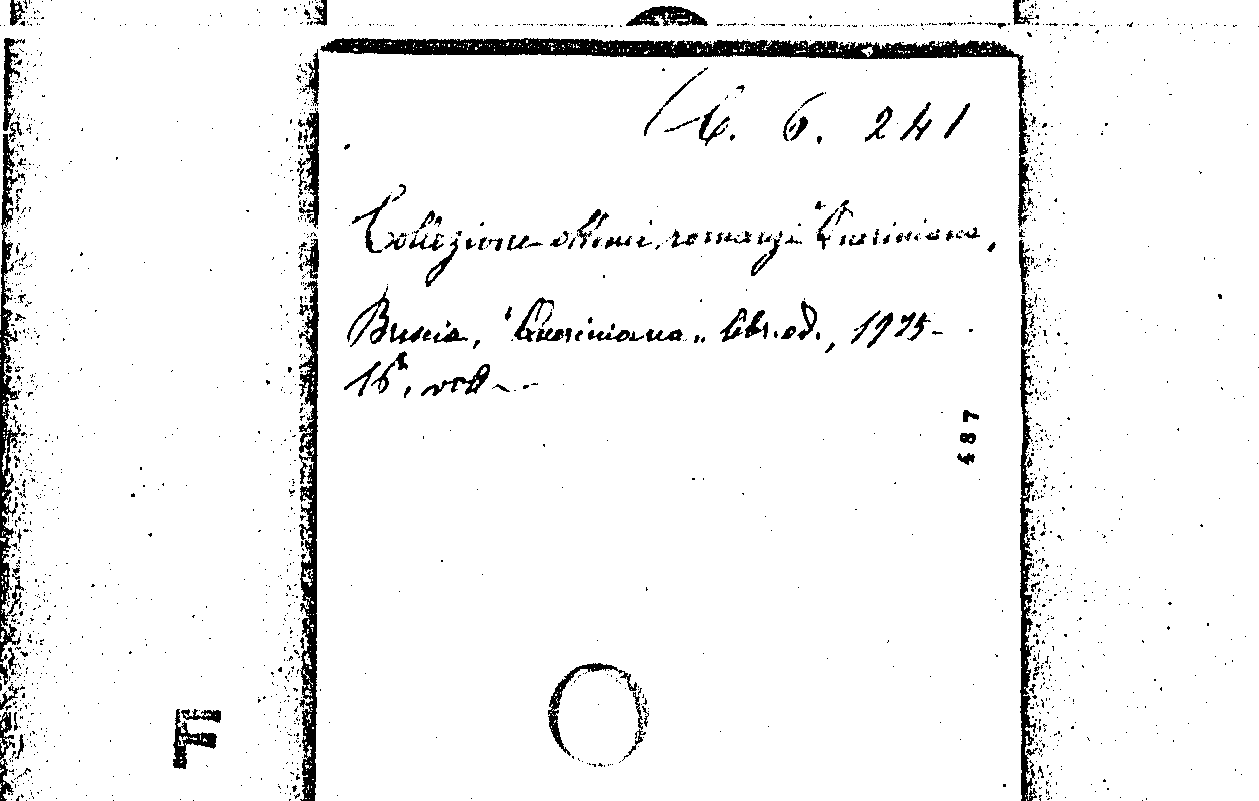 C. 6. 241
Collezione ottimi romanzi "Queriniana,
Brescia, "Queriniana„ libr. ed., 1925-
16°, voll. -
487
F